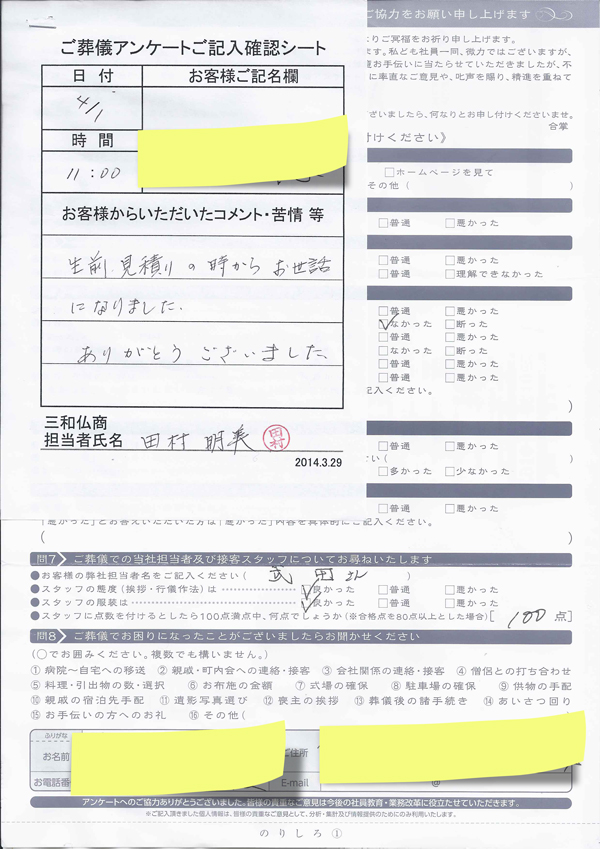 ご協力をお願い申し上げます
ご葬儀アンケートご記入確認シート
日付
お客様ご記名欄
4/1
時間
11:00
お客様からいただいたコメント・苦情 等
生前見積りの時からお世話
になりました。
ありがとうございました。
三和仏商
担当者氏名 田村 明美 田村
2014.3.29
りご冥福をお祈り申し上げます。
す。私ども社員一同、微力ではございますが、
お手伝いに当たらせていただきましたが、不
に率直なご意見や、叱声を賜り、精進を重ねて
ざいましたら、何なりとお申し付けくださいませ。
合掌
付けください》
□ホームページを見て
その他(            )
□普通 □悪かった
□普通 □悪かった
□普通 □理解できなかった
□普通 □悪かった
☑なかった □断った
□普通 □悪かった
□なかった □断った
□普通 □悪かった
□普通 □悪かった
記入ください。
)
□普通 □悪かった
さい(            )
□多かった □少なかった
□普通 □悪かった
「悪かった」とお答えいただいた方は「悪かった」内容を具体的にご記入ください。
(            )
問7 ご葬儀での当社担当者及び接客スタッフについてお尋ねいたします
●お客様の弊社担当者名をご記入ください( 武田さん )
●スタッフの態度(挨拶・行儀作法)は ☑良かった □普通 □悪かった
●スタッフの服装は ☑良かった □普通 □悪かった
●スタッフに点数を付けるとしたら100点満点中、何点でしょうか(※合格点を80点以上とした場合)[ 100 点]
問8 ご葬儀でお困りになったことがございましたらお聞かせください
(○でお囲みください。複数でも構いません。)
①病院~自宅への移送 ②親戚・町内会への連絡・接客 ③会社関係の連絡・接客 ④僧侶との打ち合わせ
⑤料理・引出物の数・選択 ⑥お布施の金額 ⑦式場の確保 ⑧駐車場の確保 ⑨供物の手配
⑩親戚の宿泊先手配 ⑪遺影写真選び ⑫喪主の挨拶 ⑬葬儀後の諸手続き ⑭あいさつ回り
⑮お手伝いの方へのお礼 ⑯その他(
ふりがな
お名前
ご住所
お電話番
E-mail @
アンケートへのご協力ありがとうございました。皆様の貴重なご意見は今後の社員教育・業務改革に役立たせていただきます。
※ご記入頂きました個人情報は、皆様の貴重なご意見として、分析・集計及び情報提供のためにのみ利用いたします。
のりしろ①